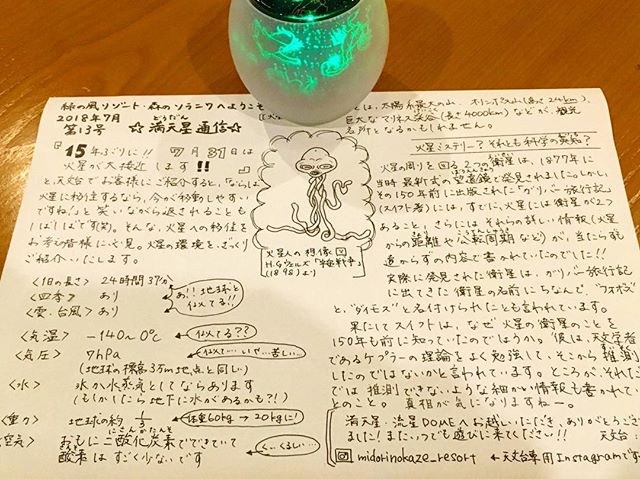 緑の風リゾート・森のソラニワへようこそ
2018年7月
第13号
どうだん
☆満天星通信☆
15年ぶりに!! 7月31日は
火星が大接近します!!
と天文台でお客様にご紹介すると、『ならば
火星に移住するなら、今が移動しやすい
ですね。』と笑いながら返されることも
しばしばです(笑)。そんな、火星への移住を
お考えの皆様に必見。火星の環境を、ざっくり
ご紹介いたします。
<1日の長さ> 24時間37分
<四季> あり
<雲、台風> あり
あ!!地球と
似てる!!
<気温> -140~0℃
似てる??
<気圧> 7hPa
(地球の標高3万m地点と同じ)
似て…いや…苦しい…
<水> 氷か水蒸気としてならあります
(もしかしたら地下に水があるかも?!)
<重力> 地球の約1/3
体重60kg→20kgに!
にさんかたんそ
<空気> おもに二酸化炭素でできていて
酸素はすごく少ないです
ぐ…くるしい…
火星人の想像図
H.G.ウェルズ「宇宙戦争」
(1898)より
は、太陽系最大の山、オリンポス山(高さ24km)、
巨大なマリネス渓谷(長さ4000km)などが、観光
名所となるかもしれません。
火星ミステリー? それとも科学の英知?
火星の周りを回る2つの衛星は、1877年に
当時最新式の望遠鏡で発見されました。しかし、
その150年前に出版された「ガリバー旅行記」
(スイフト著)には、すでに、火星には衛星が2つ
あること、さらにはそれらの詳しい情報(火星
からの距離や公転周期など)が、当たらずも
遠からずの内容で書かれていたのでした!!
実際に発見された衛星は、ガリバー旅行記
に出てきた衛星の名前にちなんで、"フォボス"
と、"ダイモス"と名付けられたとも言われています。
果たしてスイフトは、なぜ火星の衛星のことを
150年も前に知っていたのでしょうか。彼は、天文学者
であるケプラーの理論をよく勉強して、そこから推測
したのではないかと言われています。ところが、それだ
では推測できないような細かい情報も書かれて
とのこと。真相が気になりますねー。
満天星・流星DOMEへお越しいただき、ありがとうござ
ました!またいつでも遊びに来てください!!
天文台
midorinokaze_resort ←天文台専用Instagramです